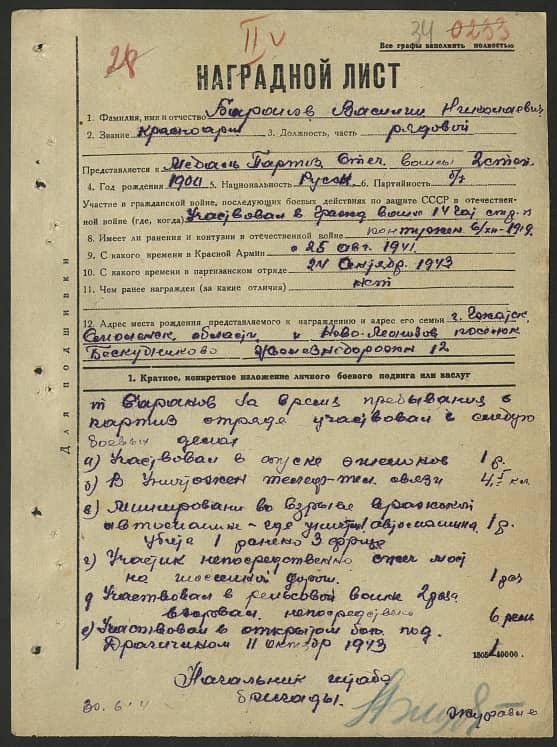 28 II v 34 0233
Все графы заполнять полностью
НАГРАДНОЙ ЛИСТ
1. Фамилия, имя и отчество Баранов Василий Николаевич
2. Звание Красноарм 3. Должность, часть рядовой
Представляется к Медаль Партиз Отеч войны 2 степ.
4. Год рождения 5. Национальность Русск 6. Партийность б/п
Участие в гражданской войне, последующих боевых действиях по защите СССР в отечествен-
ной войне (где, когда) Участвовал в гражд войне 14
8. Имеет ли ранения и контузии в отечественной войне контужен
9. С какого времени в Красной Армии с 25 авг. 1941.
10. С какого времени в партизанском отряде 24 Сентябр 1943
11. Чем ранее награжден (за какие отличия) нет
12. Адрес места рождения представляемого к награждению и адрес его семьи г. Гжатск,
Смоленск. области посёлок
Бескудниково 12
Для подшивки
1. Краткое, конкретное изложение личного боевого подвига или заслуг
т Баранов За время пребывания в
партиз отряде участвовал в
боевых делах
а) Участвовал в спуске эшелонов 1 р.
б) В Уничтожен телеф-тел. связи 4,5 кл.
в) Минировани во взрыве вражеской
автомашины - где автомашина 1 р.
1 ранено 3 фрица
г) Участник непосредственно
на шоссейной дороги. 1 раз
д) Участвовал в рельсовой войне 2 раза
взорвал непосредствено 6 рельс
е) Участвовал в открытом бою под.
Драчичином 11 октябр 1943
Начальник штаба
бригады.
30.6.4